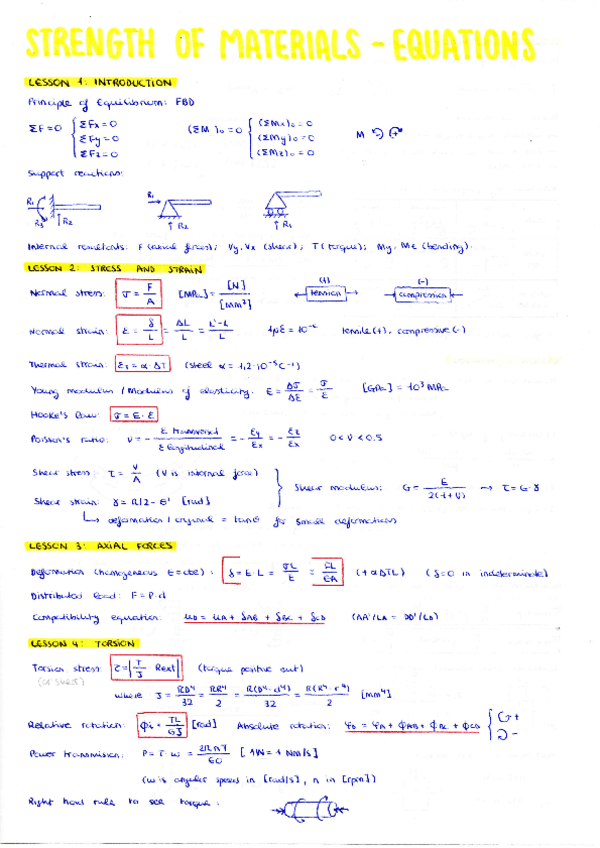 STRENGTH OF MATERIALS - EQUATIONS
LESSON 1: INTRODUCTION
Principle of Equilibrium: FBD
ΣF=0 { ΣFx=0 (ΣM)o=0 { (ΣMx)o=0
ΣFy=0 (ΣMy)o=0 M
ΣFz=0 (ΣMz)o=0
Support reactions:
R1 R3 R2 R1 R2 R1
Internal resultants: F (axial force); Vy, Vx (shear); T (torque); My, Mz (bending).
LESSON 2: STRESS AND STRAIN
Normal stress: σ = F/A [MPa] = [N]/[mm²] (+) tension (-) compression
Normal strain: ε = δ/L = ΔL/L = L'-L/L 1με = 10⁻⁶ tensile (+), compressive (-)
Thermal strain: εT = α·ΔT (steel α = 1,2·10⁻⁵C⁻¹)
Young modulus / Modulus of elasticity: E = Δσ/Δε = σ/ε [GPa] = 10³ MPa
Hooke's law: σ = E·ε
Poisson's ratio: ν = - ε transversal/ε longitudinal = - εy/εx = - εz/εx 0<ν<0.5
Shear stress: τ = V/A (V is internal force)
Shear modulus: G = E/2(1+ν) → τ = G·γ
Shear strain: γ = π/2 - θ' [rad]
deformation / original = tanθ for small deformations
LESSON 3: AXIAL FORCES
Deformation (homogeneous E=cte): δ = ε·L = σL/E = FL/EA (+αΔTL) (δ=0 in indeterminate)
Distributed load: F = P·d
Compatibility equation: uD = uA + δAB + δBC + δCD (AA'/LA = DD'/LD)
LESSON 4: TORSION
Torsion stress: τ = |T/J Rext| (torque positive out)
(or shear)
where J = πD⁴/32 = πR⁴/2 = π(D⁴-d⁴)/32 = π(R⁴-r⁴)/2 [mm⁴]
Relative rotation: ϕi = TL/GJ [rad] Absolute rotation: φD = φA + ϕAB + ϕBC + ϕCD { + -
Power transmission: P = T·ω = 2πnT/60 [1W = 1 Nm/s]
(ω is angular speed in [rad/s], n in [rpm])
Right hand rule to see torque: